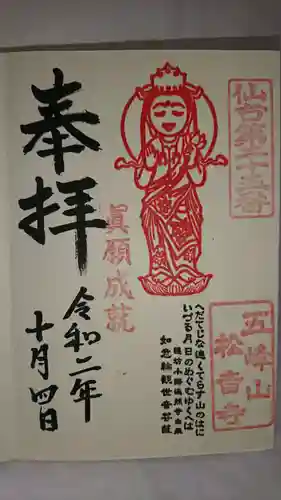 仙台第十五番
五峰山
松音寺
へだてじな遠くてらす山のはに
いづる月日のめぐむゆくへは
如意輪観世音菩薩
眞願成就
奉拝
令和二年
十月四日